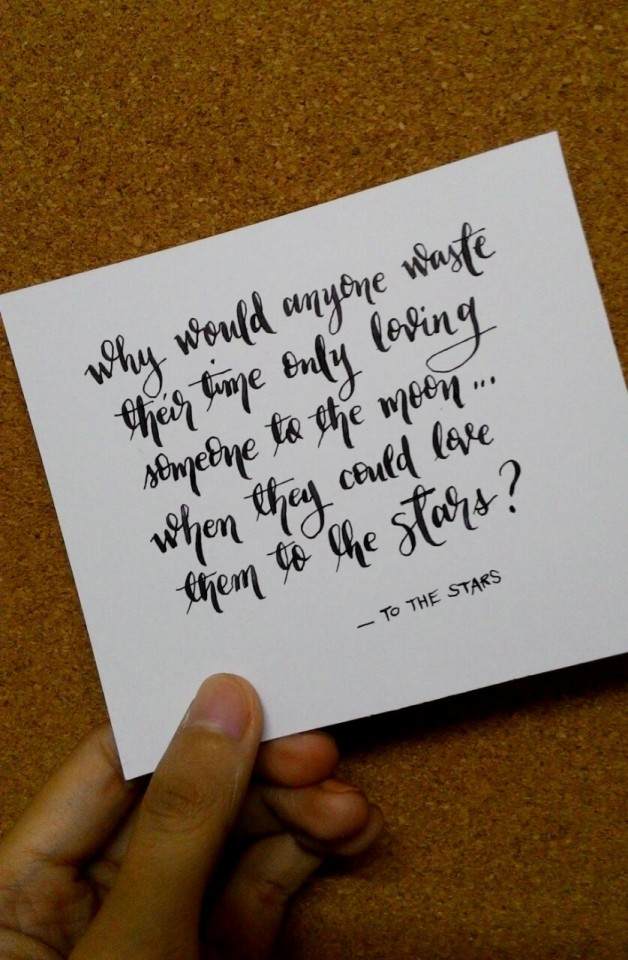 why would anyone waste
their time only loving
someone to the moon...
when they could love
them to the stars?
— TO THE STARS